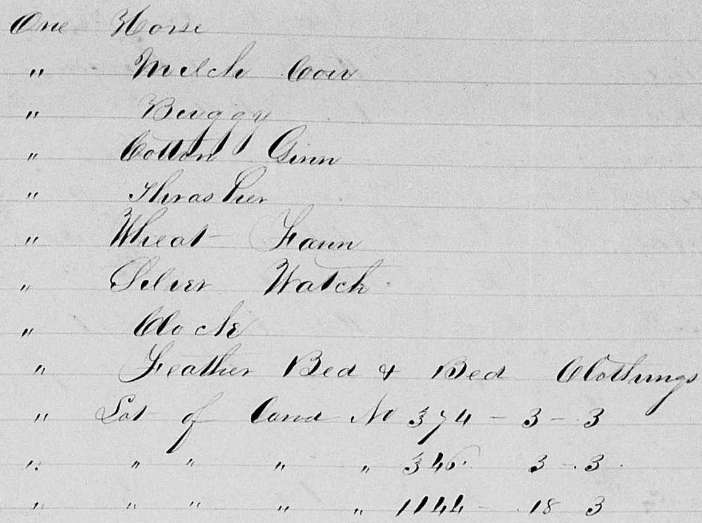 One Horse
" Milch Cow
" Buggy
" Cotton Ginn
" Thrasher
" Wheat Fann
" Silver Watch
" Clock
" Feather Bed & Bed Clothings
" Lot of Land No 374 - 3 - 3
" " " " " 346 3 - 3
" " " " " 1144 - 18 3